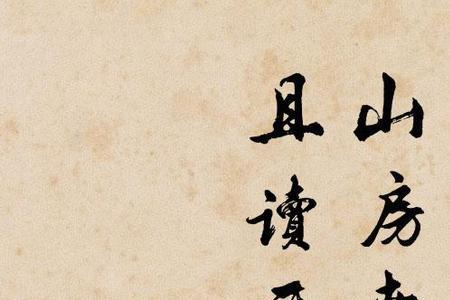 山房
且讀